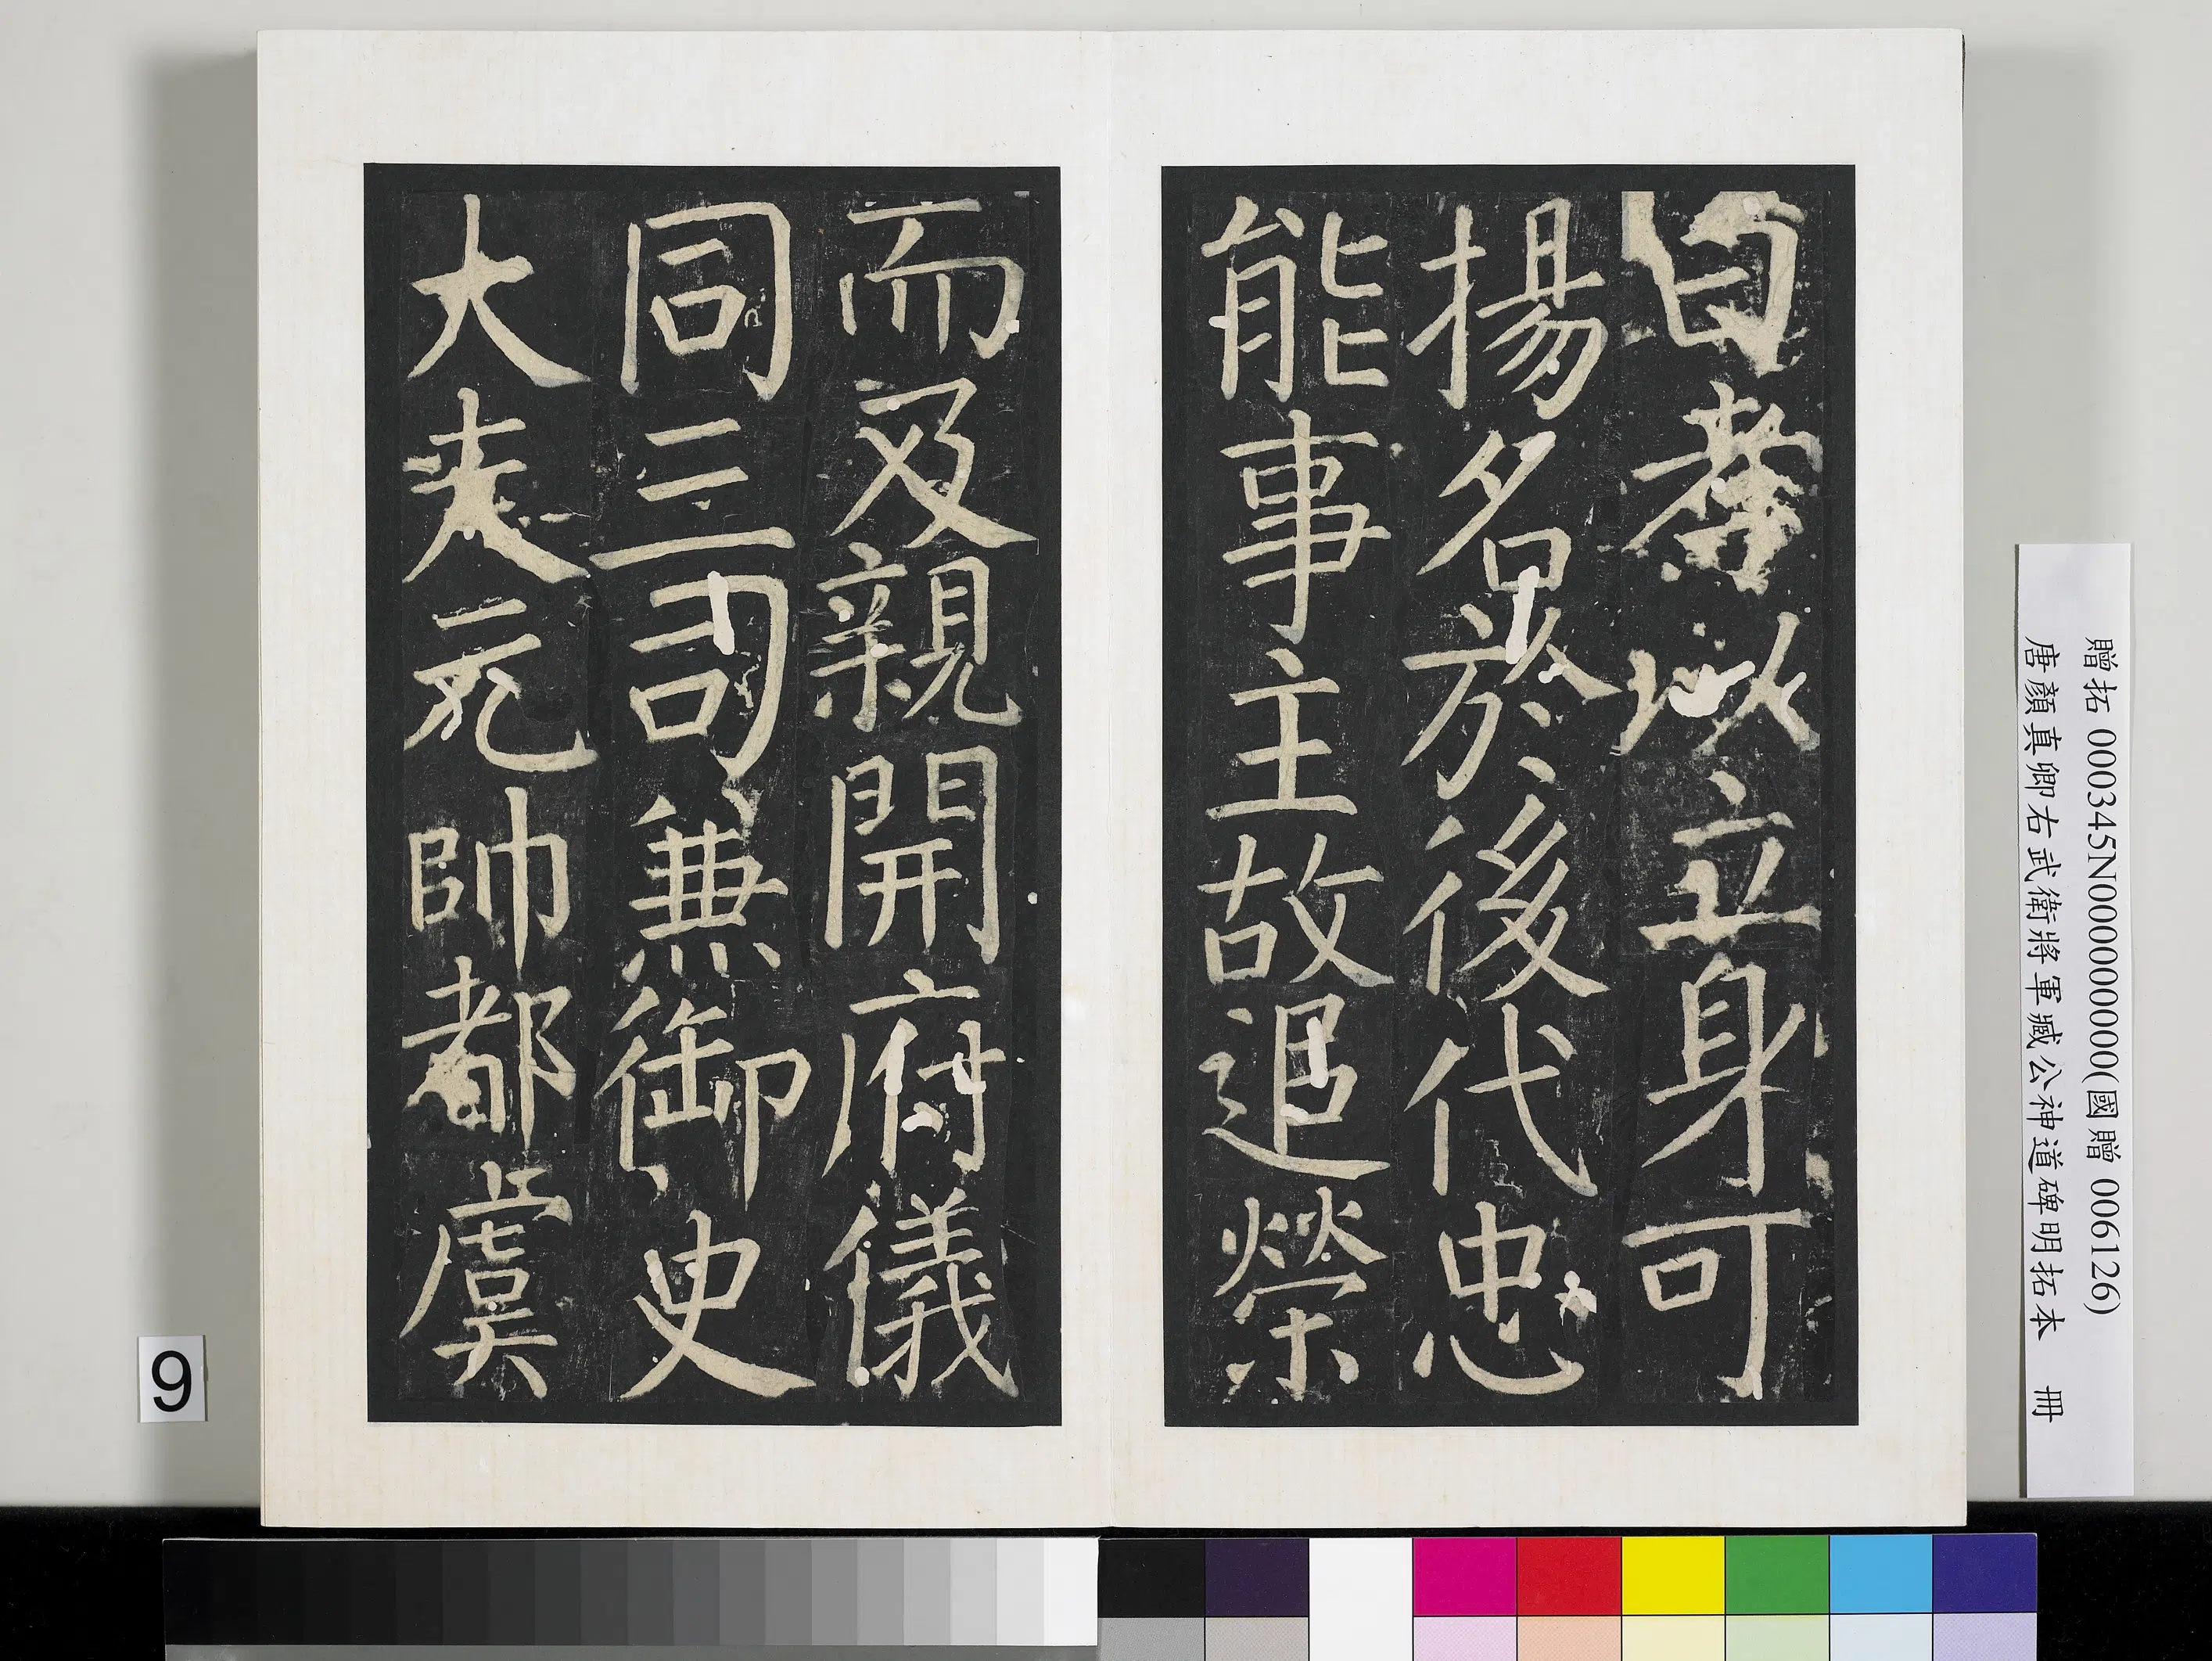 曰孝以立身可
揚名於後代忠
能事主故追榮
而及親開府儀
同三司兼御史
大夫元帥都虞
贈拓 000345N000000000(國贈 006126)
唐顏真卿右武衛將軍臧公神道碑明拓本 冊
9